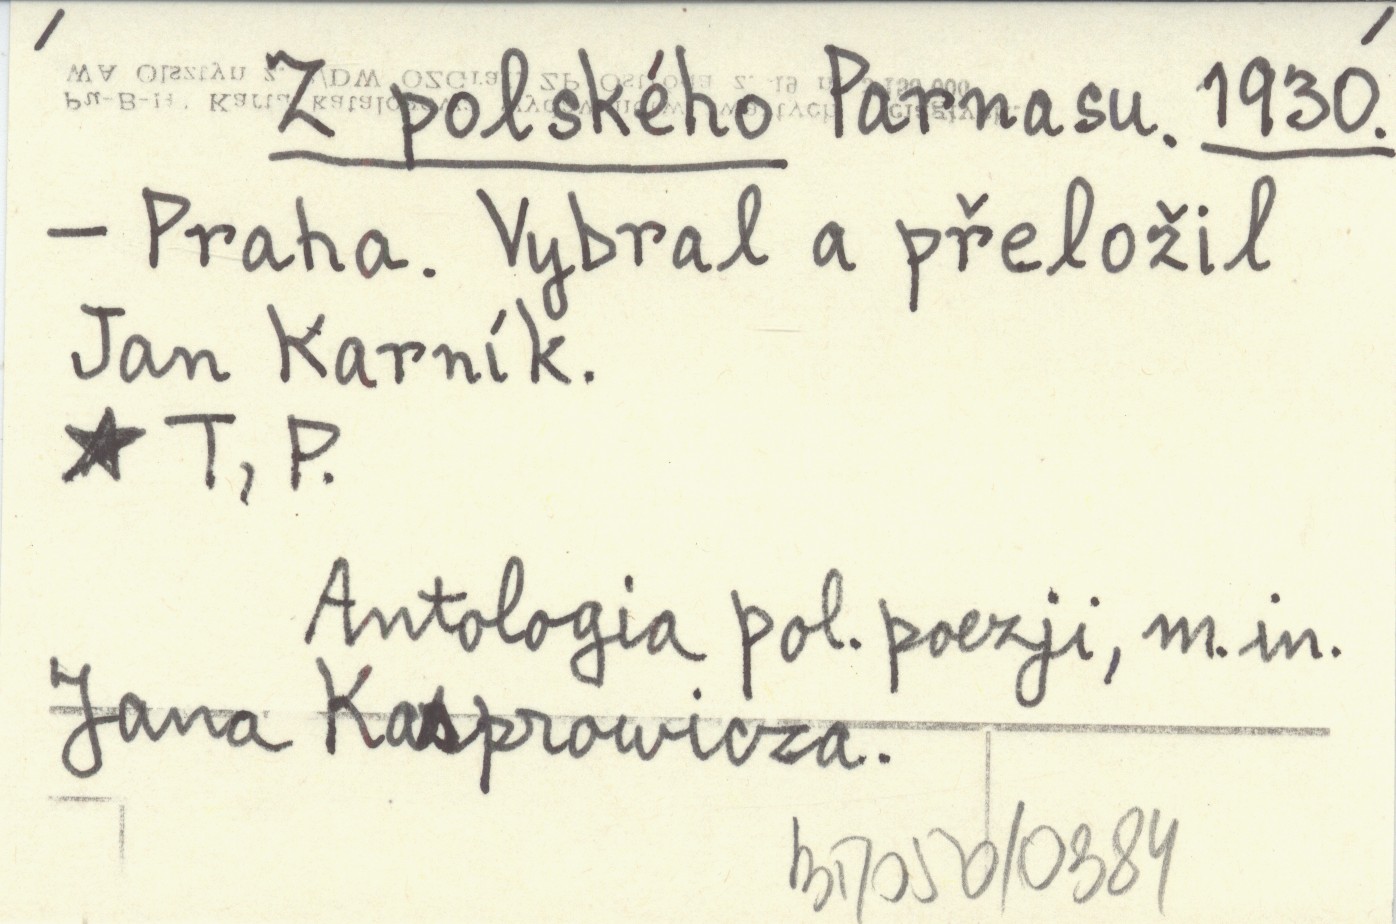 Z polského Parnasu. 1930.
– Praha. Vybral a přeložil
Jan Karník.
★ T, P.
Antologia pol. poezji, m.in.
Jana Kasprowicza.
/0384